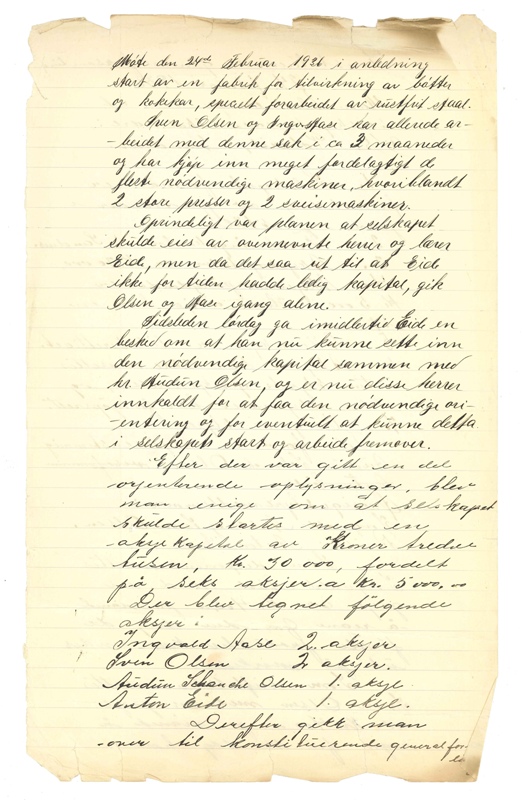 Møte den 24de Februar 1926 i anledning
start av en fabrik for tilvirkning av bøtter
og kokekar, specielt forarbeidet av rustfrit staal.
Sven Olsen og Ingv. Aase har allerede ar-
-beidet med denne sak i ca 3 maaneder
og har kjøpt inn meget fordelagtigt de
fleste nödvendige maskiner, hvoriblandt
2 store presser og 2 sveisemaskiner.
Oprindeligt var planen at selskapet
skulde eies av ovennevnte herrer og lærer
Eide, men da det saa ut til at Eide
ikke for tiden hadde ledig kapital, gik
Olsen og Aase igang alene.
Sidsleden lördag ga imidlertid Eide en
besked om at han nu kunne sette inn
den nödvendige kapital sammen med
hr. Audun Olsen, og er nu disse herrer
innkaldt for at faa den nödvendige ori-
-entering og for eventuelt at kunne detta
i selskapets start og arbeide fremover.
Efter der var gitt en del
orjenterende oplysninger, blev
man enige om at selskapet
skulde startes med en
aksjekapital av Kroner tredve
tusen, Kr. 30 000, fordelt
på seks aksjer a Kr. 5000,00
Der blev tegnet fölgende
aksjer:
Ingvald Aase 2. aksjer
Sven Olsen 2 aksjer.
Audun Schanche Olsen 1. aksje
Anton Eide 1. aksje.
Derefter gikk man
over til konstituerende generalfor-